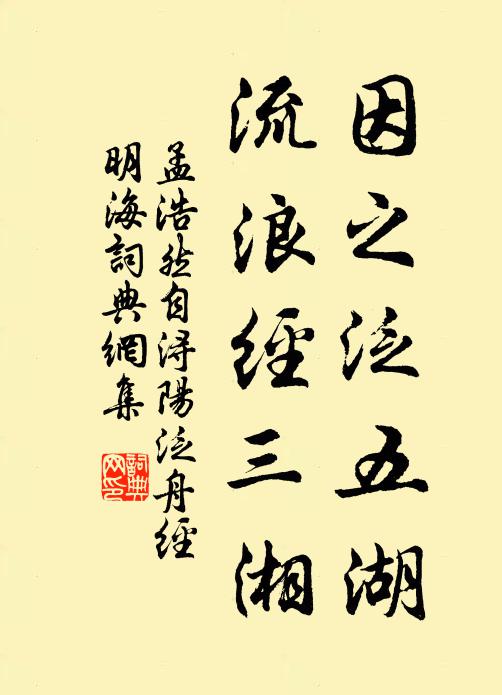 因之泛五湖
流浪經三湘
孟浩然自潯陽泛舟經
明海詞典網集
詞典
网印